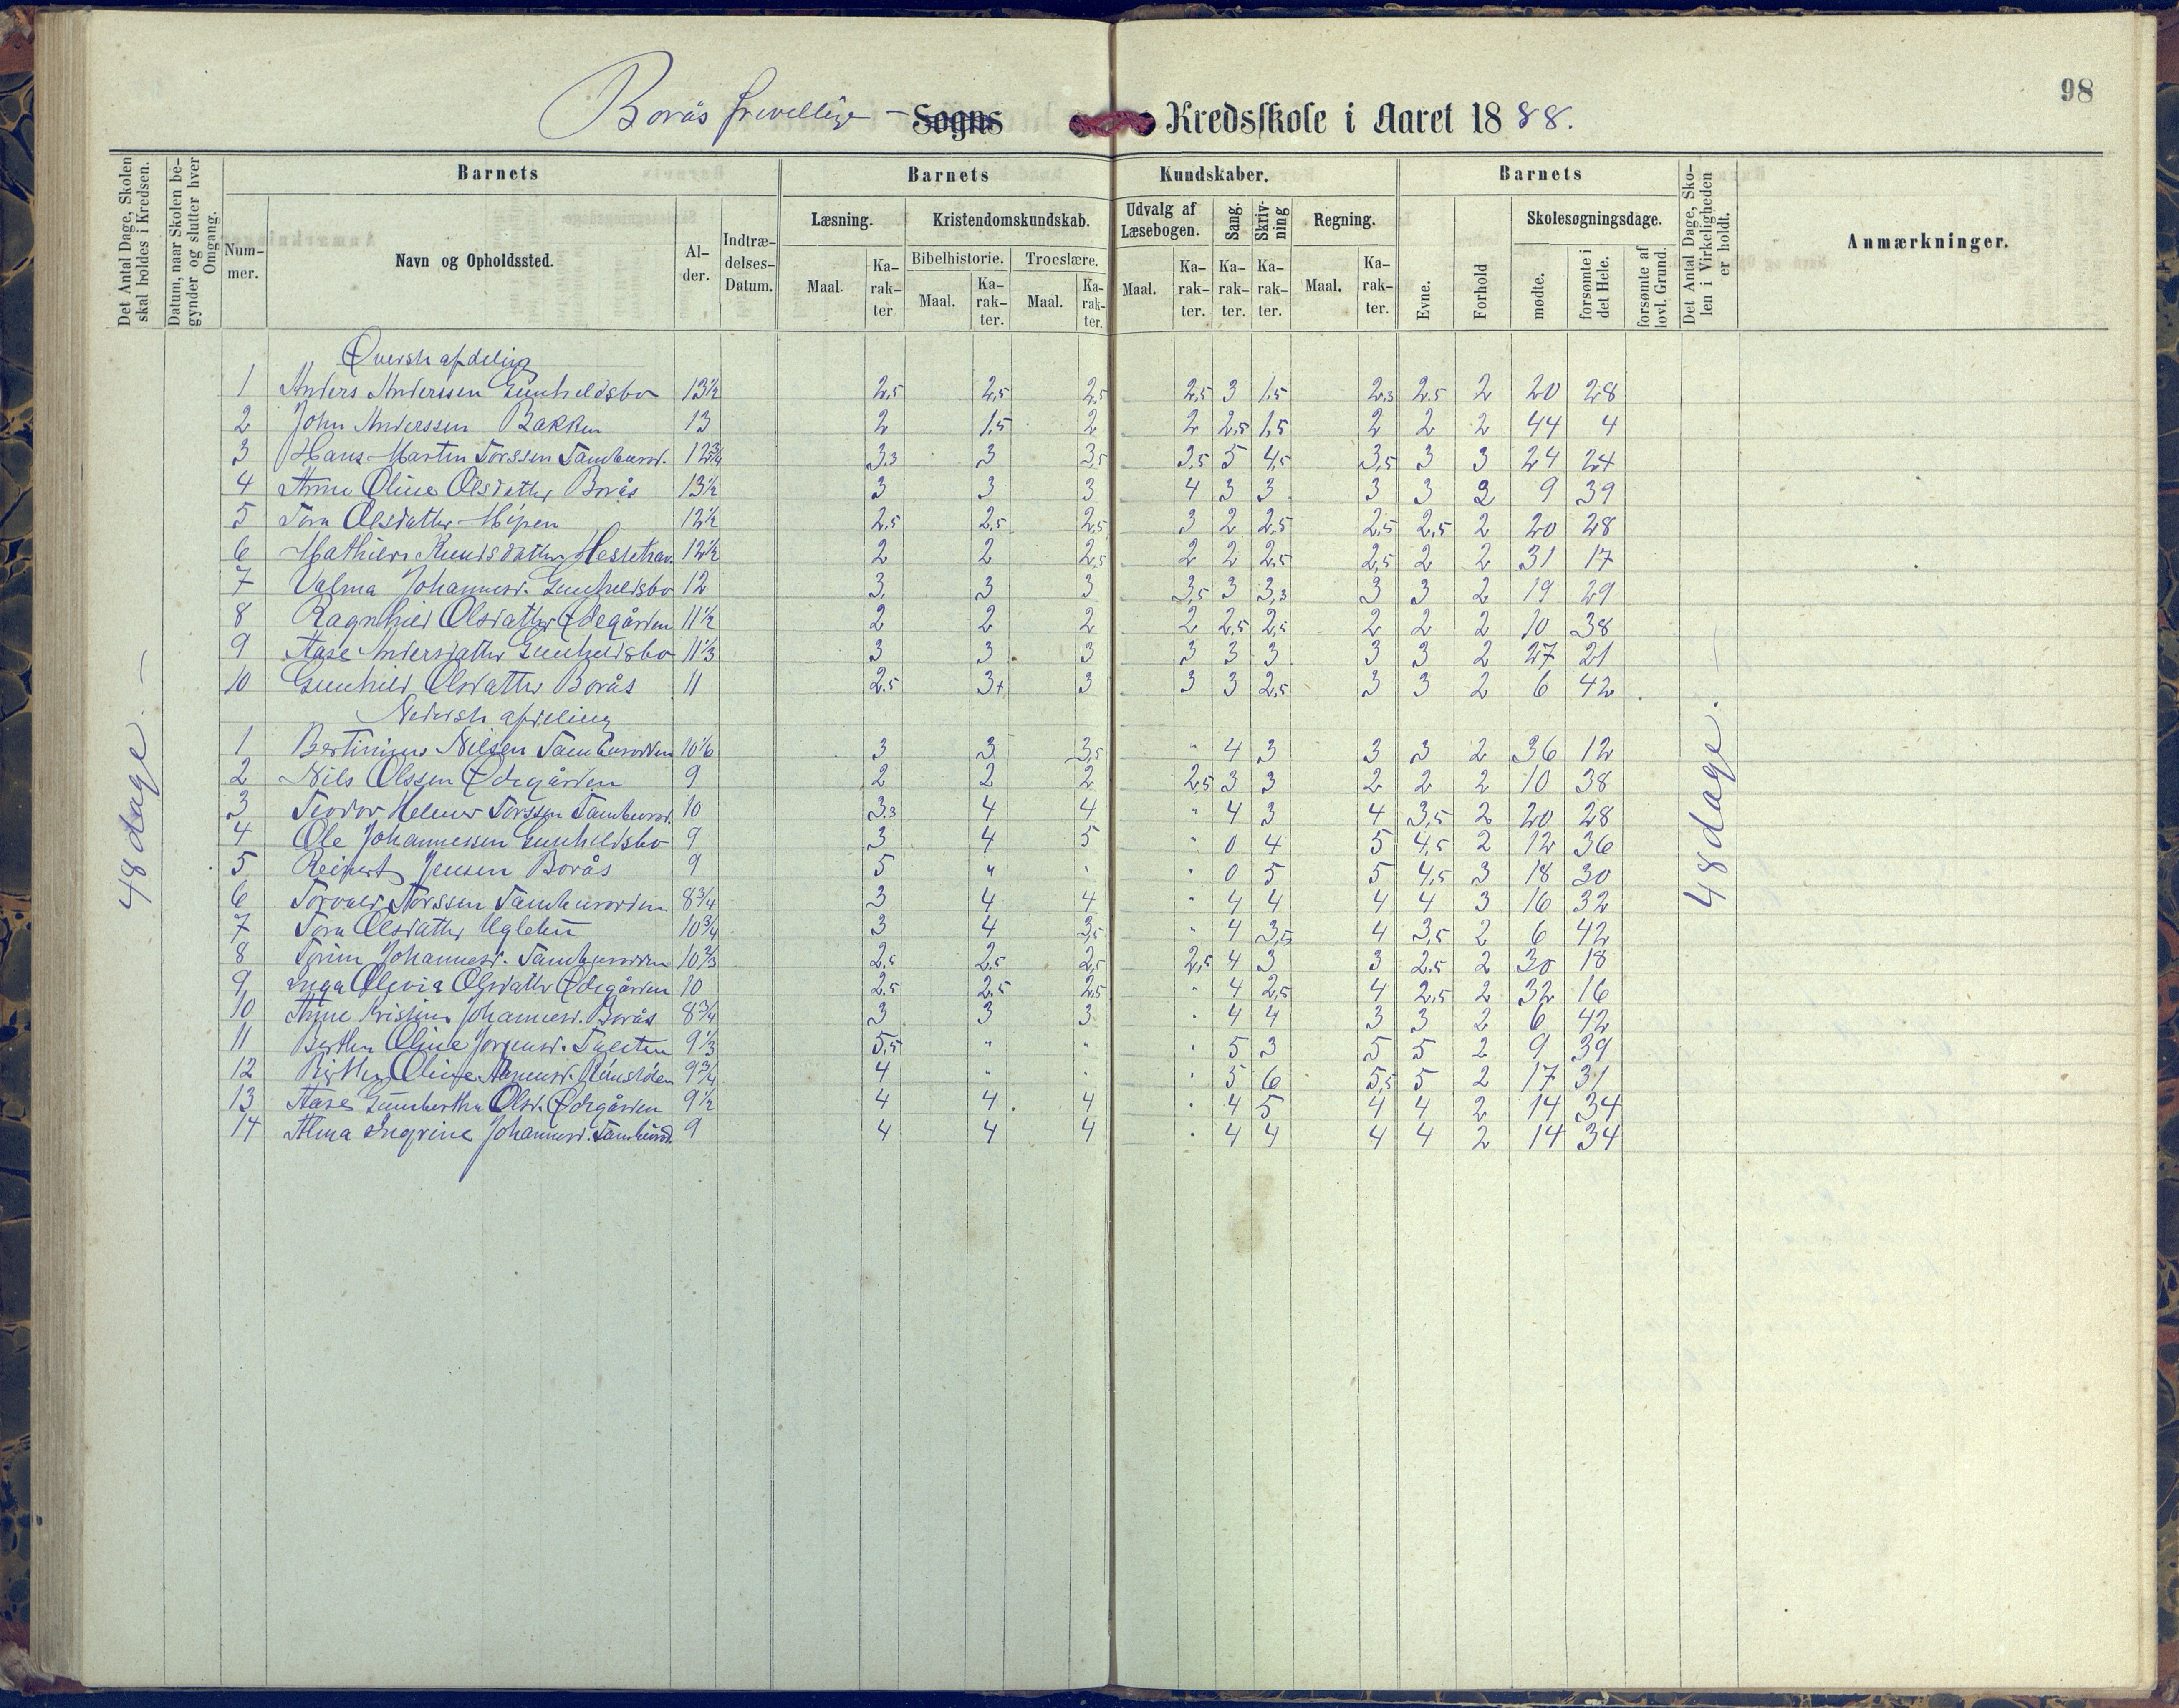 98
Borås frivillige - Sogns Kredsskole i Aaret 1888.
Det Antal Dage, Skolen skal holdes i Kredsen.
Datum, naar Skolen begynder og slutter hver Omgang.
Barnets
Num-mer.
Navn og Opholdssted.
Al-der.
Indtræ-delses-Datum.
Barnets Kundskaber.
Læsning.
Maal.
Ka-rak-ter
Kristendomskundskab.
Bibelhistorie.
Maal.
Ka-rak-ter.
Troeslære.
Maal.
Ka-rak-ter.
Udvalg af Læsebogen.
Maal.
Ka-rak-ter.
Sang.
Ka-rak-ter.
Skriv-ning
Ka-rak-ter.
Regning.
Maal.
Ka-rak-ter.
Barnets
Evne.
Forhold
Skolesøgningsdage.
mødte.
forsømte i det Hele.
forsømte af lovl. Grund.
Det Antal Dage, Sko-len i Virkeligheden er holdt.
Anmærkninger.
48 dage. —
48 dage. —
Øversle afdeling
1 Anders Anderssen Gunhildsbo 13½ 2,5 2,5 2,5 2,5 3 1,5 2,3 2,5 2 20 28
2 John Anderssen Bakken 13 2 1,5 2 2 2,5 1,5 2 2 2 44 4
3 Hans Martin Torssen 12¾ 3,3 3 3,5 3,5 5 4,5 3,5 3 3 24 24
4 Anne Oline Olsdatter Borås 13½ 3 3 3 4 3 3 3 3 2 9 39
5 Tora Olsdatter 12½ 2,5 2,5 2,5 3 2 2,5 2,5 2,5 2 20 28
6 Mathilde Knudsdatter 12½ 2 2 2,5 2 2 2,5 2,5 2 2 31 17
7 Valma Johannesd. Gunhildsbo 12 3, 3 3 3,5 3 3,3 3 3 2 19 29
8 Ragnhild Olsdatter Ødegården 11½ 2 2 2 2 2,5 2,5 2 2 2 10 38
9 Aase Andersdatter Gunhildsbo 11⅓ 3 3 3 3 3 3 3 3 2 27 21
10 Gunhild Olsdatter Borås 11 2,5 3+ 3 3 3 2,5 3 3 2 6 42
Nedersle afdeling
1 Nilsen 10⅙ 3 3 3,5 " 4 3 3 3 2 36 12
2 Nils Olssen Ødegården 9 2 2 2 2,5 3 3 2 2 2 10 38
3 Teodor Helmer Torssen 10 3,3 4 4 " 4 3 4 3,5 2 20 28
4 Ole Johannessen Gunhildsbo 9 3 4 5 " 0 4 5 4,5 2 12 36
5 Reinert Jensen Borås 9 5 " " " 0 5 5 4,5 3 18 30
6 Torvald Torssen 8¾ 3 4 4 " 4 4 4 4 3 16 32
7 Tora Olsdatter 10¾ 3 4 3,5 " 4 3,5 4 3,5 2 6 42
8 Johannesd. 10⅔ 2,5 2,5 2,5 2,5 4 3 3 2,5 2 30 18
9 Inga Olevia Olsdatter Ødegården 10 2,5 2,5 2,5 " 4 2,5 4 2,5 2 32 16
10 Anne Kristine Johannesd. Borås 8¾ 3 3 3 " 4 4 3 3 2 6 42
11 Berthe Oline Jørgensd. 9⅓ 5,5 " " " 5 3 5 5 2 9 39
12 Oline 9¾ 4 " " " 5 6 5,5 5 2 17 31
13 Aase Gunberthe Olsd. Ødegården 9½ 4 4 4 " 4 5 4 4 2 14 34
14 Alma Ingrine Johannesd. 9 4 4 4 " 4 4 4 4 2 14 34